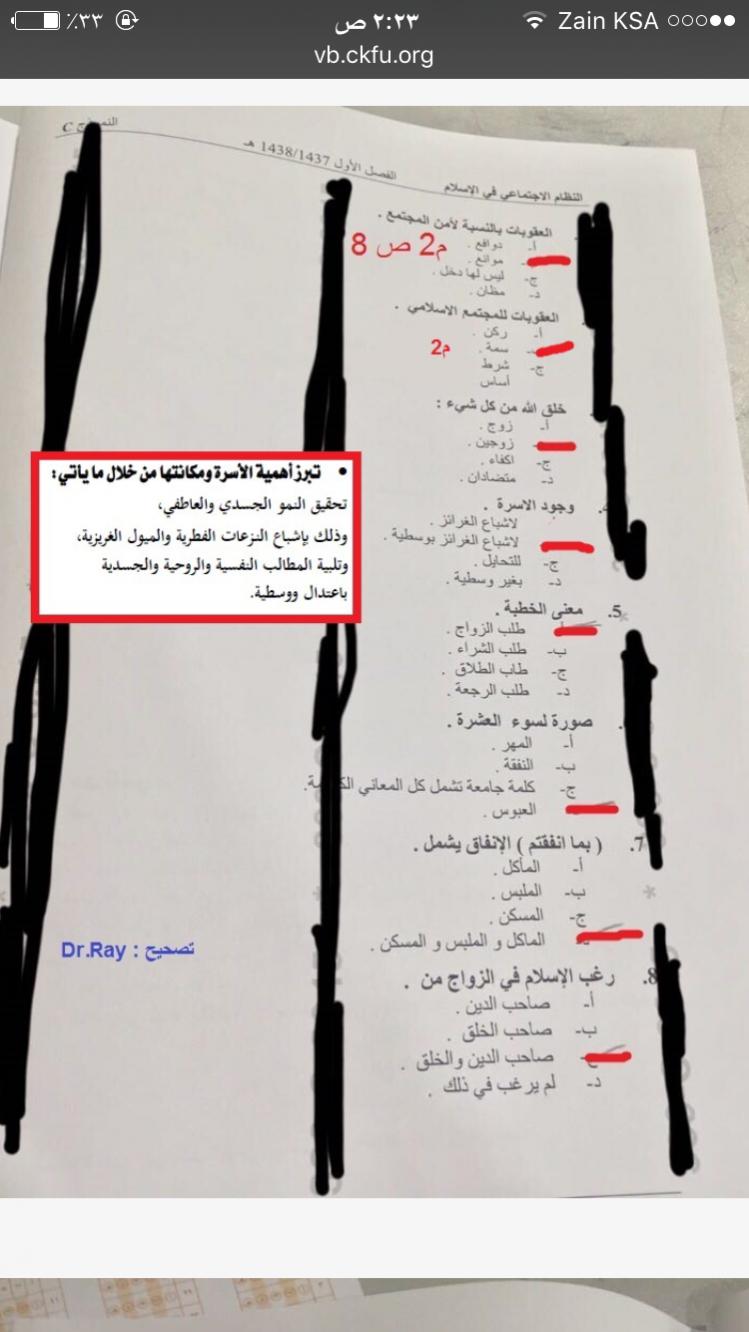 ٪٣٣
٢:٢٣ ص
Zain KSA
vb.ckfu.org
C
الفصل الأول 1438/1437 هـ
النظام الاجتماعي في الإسلام
العقوبات بالنسبة لأمن المجتمع .
أ- دوافع .
موانع .
ج- ليس لها دخل .
د- مظان .
م2 ص 8
العقوبات للمجتمع الاسلامي .
أ- ركن .
سمة .
ج- شرط
أساس
م2
خلق الله من كل شيء :
أ- زوج .
زوجين .
ج- اكفاء .
د- متضادان .
وجود الاسرة .
لاشباع الغرائز .
لاشباع الغرائز بوسطية .
ج- للتحايل .
د- بغير وسطية .
• تبرز أهمية الأسرة ومكانتها من خلال ما يأتي:
تحقيق النمو الجسدي والعاطفي،
وذلك بإشباع النزعات الفطرية والميول الغريزية،
وتلبية المطالب النفسية والروحية والجسدية
باعتدال ووسطية.
5. معنى الخطبة .
طلب الزواج .
ب- طلب الشراء .
ج- طاب الطلاق .
د- طلب الرجعة .
صورة لسوء العشرة .
أ- المهر .
ب- النفقة .
ج- كلمة جامعة تشمل كل المعاني
العبوس .
7. ( بما انفقتم ) الإنفاق يشمل .
أ- المأكل .
ب- الملبس .
ج- المسكن .
الماكل و الملبس و المسكن .
8. رغب الإسلام في الزواج من .
أ- صاحب الدين .
ب- صاحب الخلق .
صاحب الدين والخلق .
د- لم يرغب في ذلك .
تصحيح : Dr.Ray